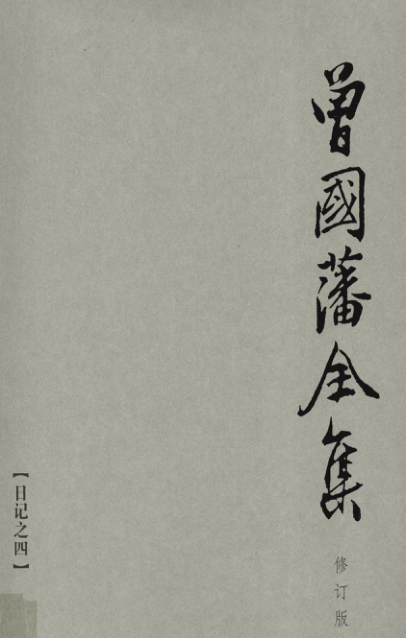 曾國藩全集
修订版
【日记之四】